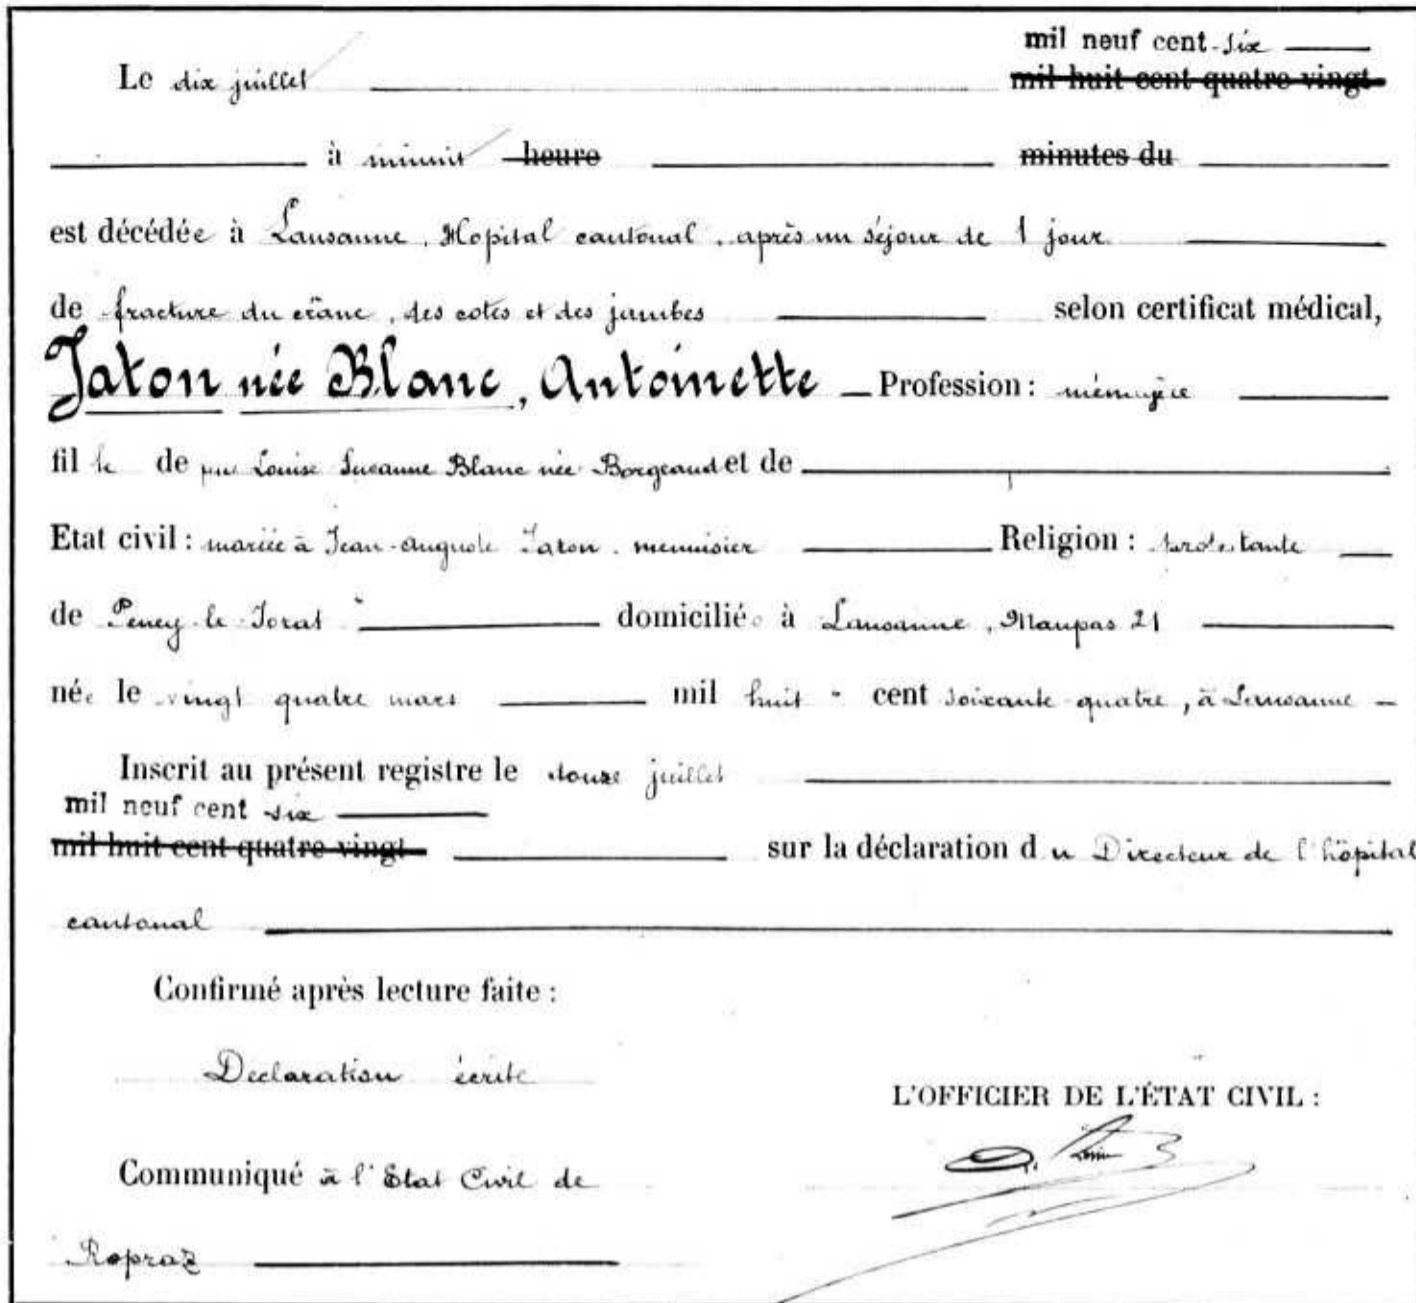 mil neuf cent six
Le dix juillet mil huit cent quatre vingt
à minuit heure minutes du
est décédée à Lausanne, Hopital cantonal, après un séjour de 1 jour
de fracture du crâne, des cotes et des jambes selon certificat médical,
Jaton née Blanc, Antoinette Profession : ménagère
fil le de Louise Susanne Blanc née Borgeaud et de
Etat civil : mariée à Jean-Auguste Jaton, menuisier Religion : protestante
de Peney-le-Jorat domiciliée à Lausanne, Maupas 21
née le vingt quatre mars mil huit - cent soixante-quatre, à Lausanne
Inscrit au présent registre le douze juillet
mil neuf cent six
mil huit cent quatre vingt sur la déclaration du Directeur de l'hôpital
cantonal
Confirmé après lecture faite :
Declaration écrite
L'OFFICIER DE L'ÉTAT CIVIL :
Communiqué à l'Etat Civil de
Ropraz